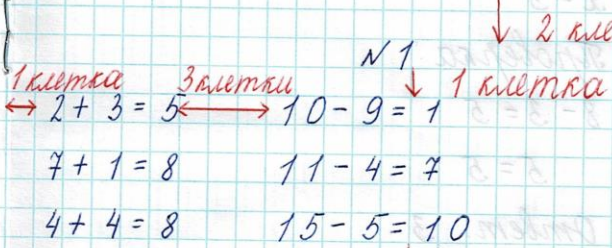 2 кле
N 1
1 клетка 3 клетки 1 клетка
2 + 3 = 5 10 - 9 = 1
7 + 1 = 8 11 - 4 = 7
4 + 4 = 8 15 - 5 = 10